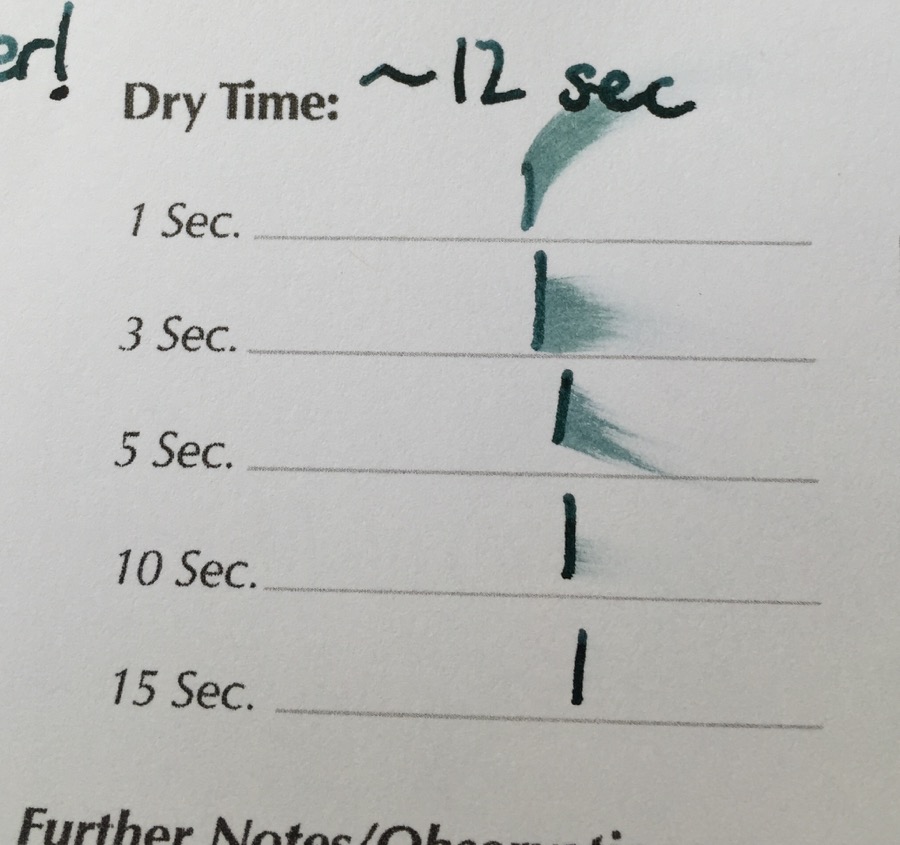 er!
Dry Time: ~12 sec
1 Sec.
3 Sec.
5 Sec.
10 Sec.
15 Sec.
Further Notes/